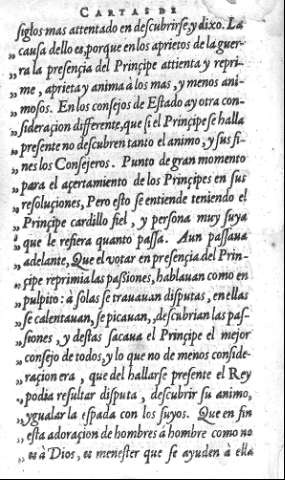 CARTAS DE
siglos mas attentado en descubrirse, y dixo. La
„ causa dello es, porque en los aprietos de la guer-
„ ra la presençia del Prinçipe attienta y repri-
„ me, aprieta y anima à los mas, y menos ani-
„ mosos. En los consejos de Estado ay otra con-
„ sideraçion differente, que si el Prinçipe se halla
„ presente no descubren tanto el animo, y sus fi-
„ nes los Consejeros. Punto de gran momento
„ para el açertamiento de los Prinçipes en sus
„ resoluçiones, Pero esto se entiende teniendo el
„ Prinçipe cardillo fiel, y persona muy suya
„ que le refiera quanto passa. Aun passaua
„ adelante, Que el votar en presençia del Prin-
„ çipe reprimia las passiones, hablauan como en
„ pulpito: à solas se trauauan disputas, en ellas
„ se calentauan, se picauan, descubrian las pas-
„ siones, y destas sacaua el Prinçipe el mejor
„ consejo de todos, y lo que no de menos conside-
„ raçion era, que del hallarse presente el Rey
„ podia resultar disputa, descubrir su animo,
„ ygualar la espada con los suyos. Que en fin
„ esta adoraçion de hombres à hombre como no
„ es à Dios, es menester que se ayuden à ella